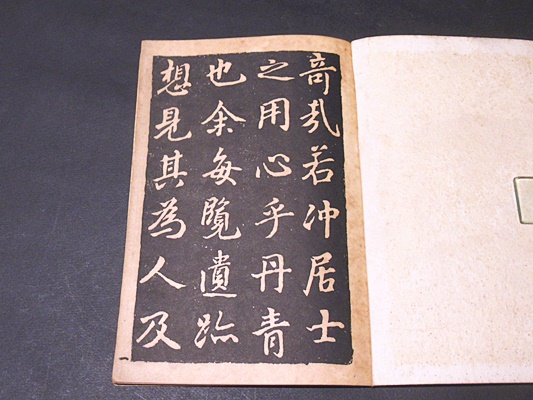 奇哉若冲居士
之用心乎丹青
也余每覽遺跡
想見其為人及